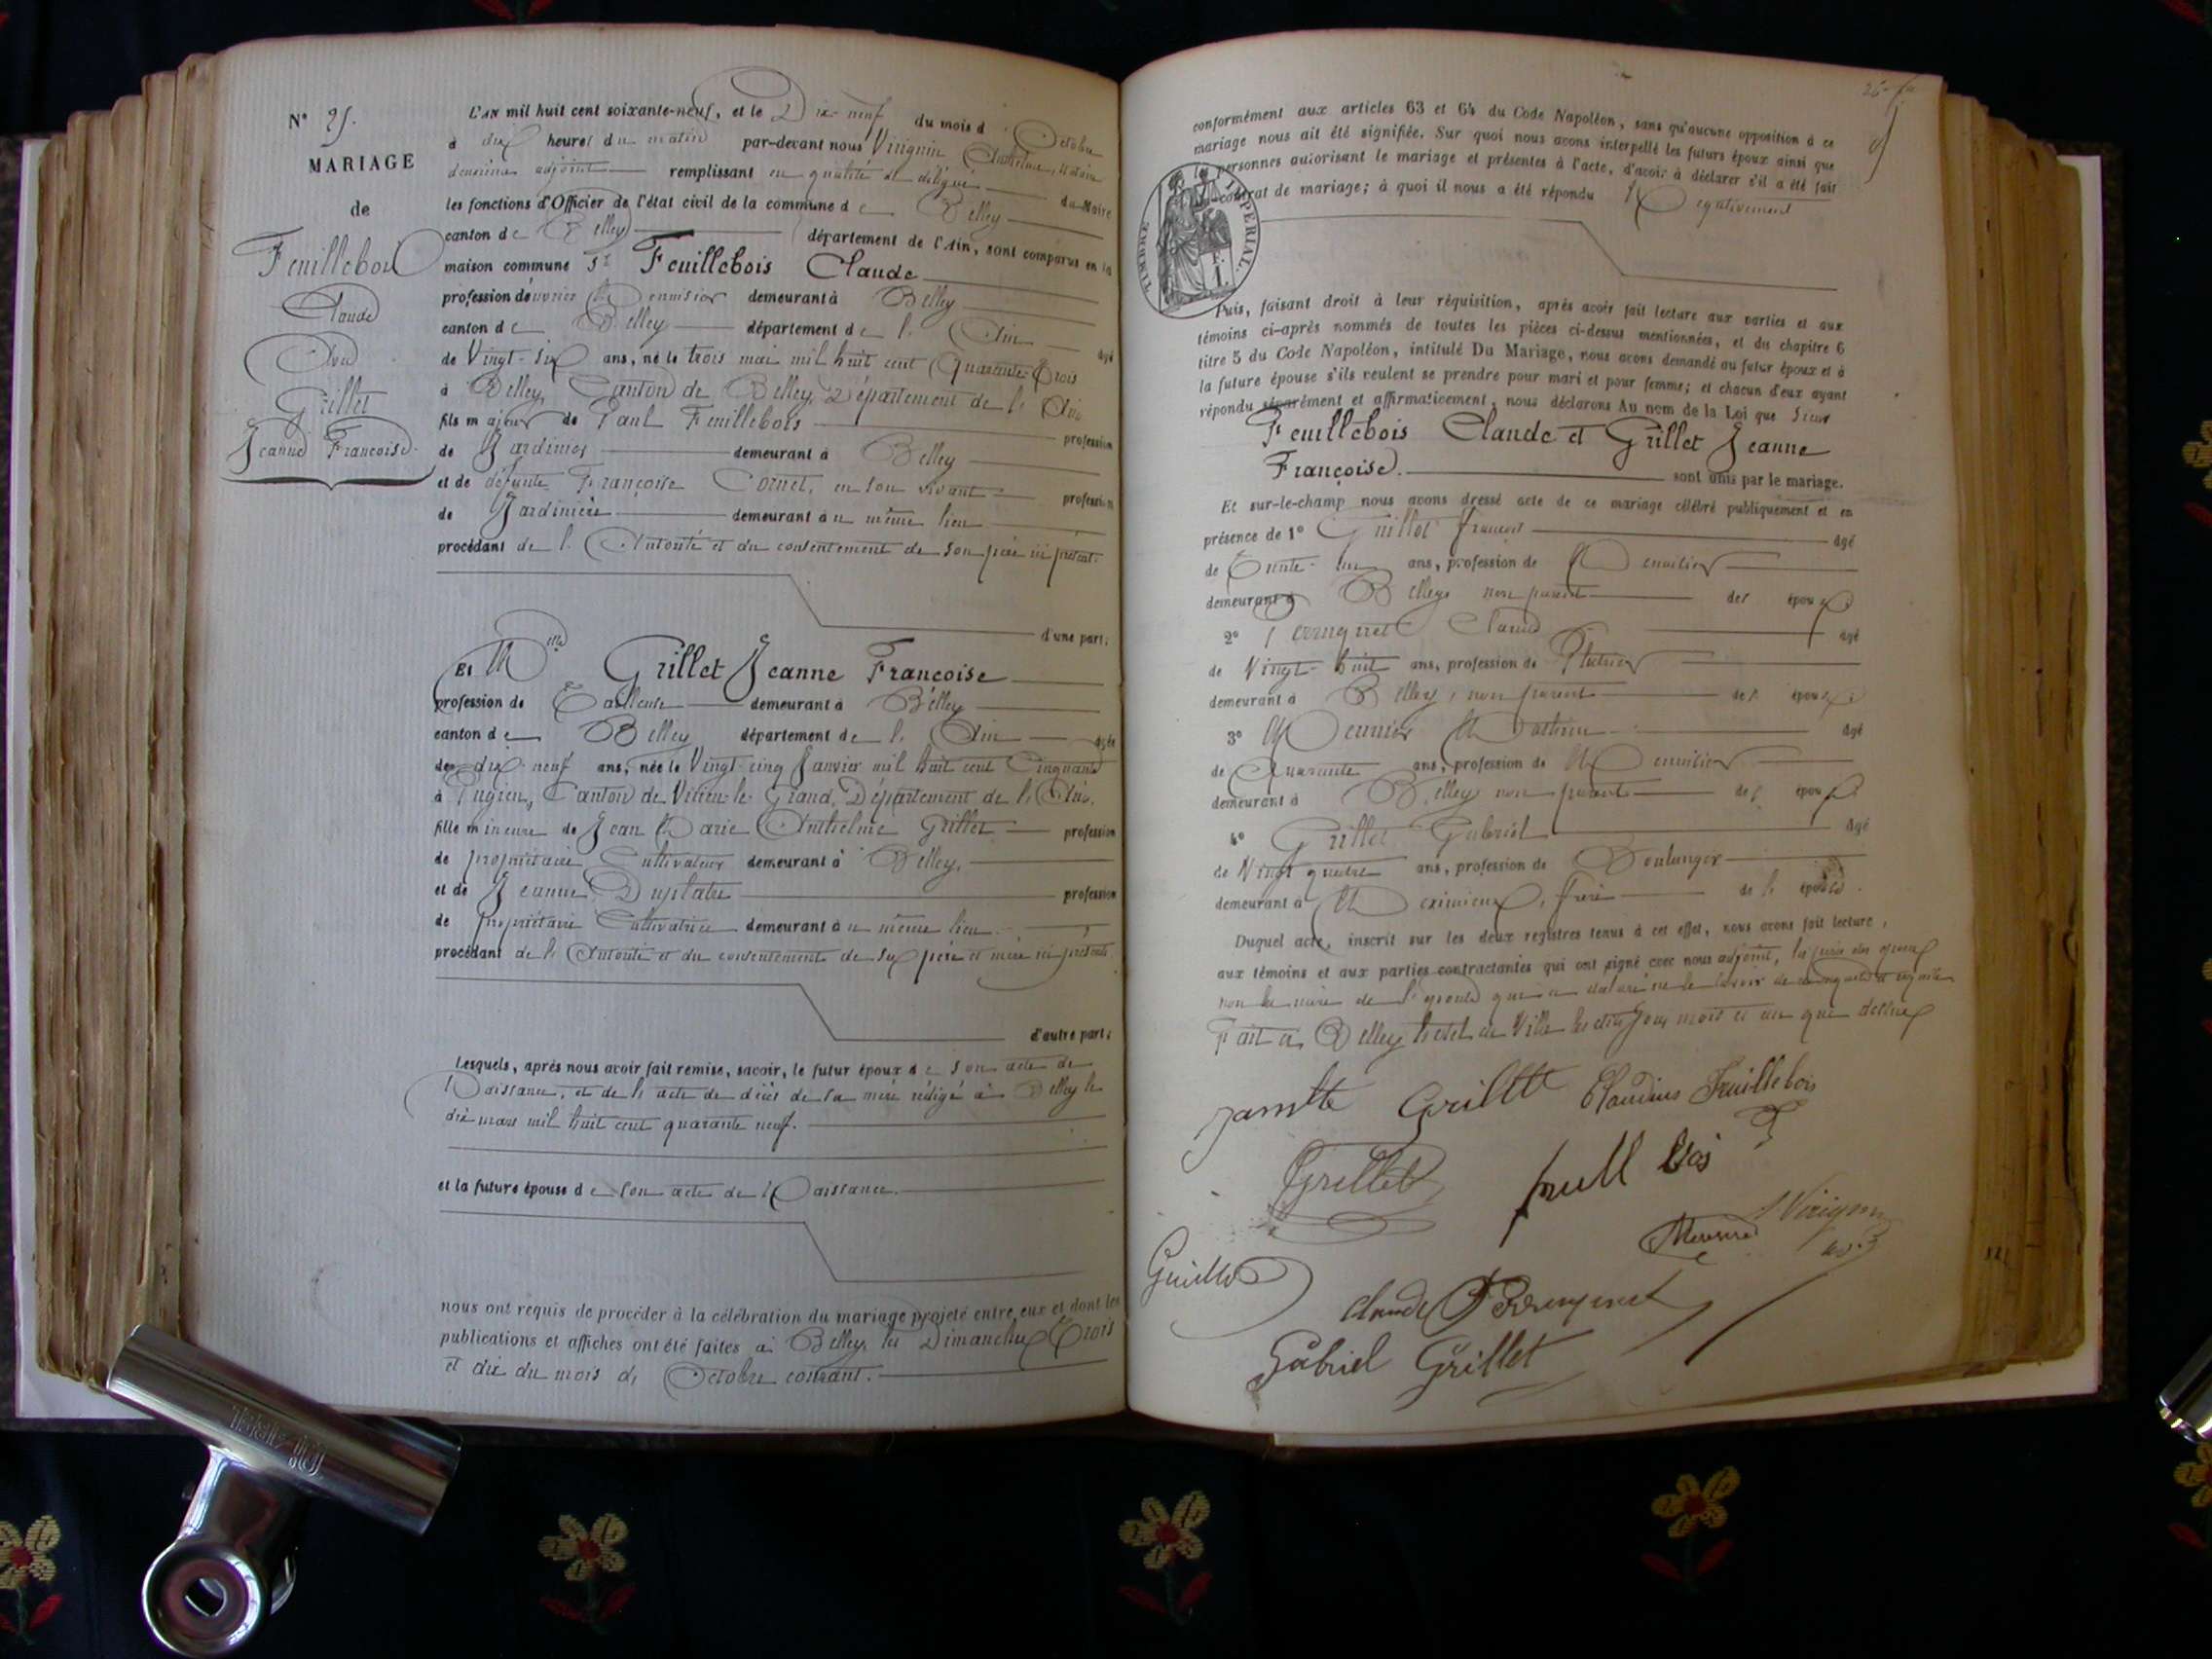 N° 25.
MARIAGE
de
Feuillebois
Claude
Avec
Grillet
Jeanne Françoise.
L'AN mil huit cent soixante-neuf, et le Dix-neuf du mois d'Octobre
à dix heures du matin par-devant nous Virignin Anthelme, Notaire
deuxième adjoint remplissant en qualité de délégué du Maire
les fonctions d'Officier de l'état civil de la commune de Belley
canton de Belley département de l'Ain, sont comparus en la
maison commune Sr Feuillebois Claude
profession d'ouvrier Menuisier demeurant à Belley
canton de Belley département de l'Ain âgé
de Vingt-six ans, né le trois mai mil huit cent Quarante-Trois
à Belley, Canton de Belley, Département de l'Ain
fils majeur de Paul Feuillebois profession
de Jardinier demeurant à Belley
et de défunte Françoise Cornet, en son vivant profession
de Jardinière demeurant au même lieu
procédant de l'Autorité et du consentement de son père ici présent.
d'une part;
Et Mlle Grillet Jeanne Françoise
profession de Tailleuse demeurant à Belley
canton de Belley département de l'Ain âgée
de dix-neuf ans, née le Vingt-cinq Janvier mil huit cent Cinquante
à Pugieu, Canton de Virieu-le-Grand, Département de l'Ain.
fille mineure de Jean Marie Anthelme Grillet profession
de propriétaire Cultivateur demeurant à Belley,
et de Jeanne Duplatre profession
de propriétaire Cultivatrice demeurant au même lieu
procédant de l'Autorité et du consentement de ses père et mère ici présents
d'autre part;
Lesquels, après nous avoir fait remise, savoir, le futur époux de son acte de
Naissance, et de l'acte de décès de sa mère rédigé à Belley le
dix mars mil huit cent quarante neuf.
et la future épouse de son acte de Naissance.
nous ont requis de procéder à la célébration du mariage projeté entre eux et dont les
publications et affiches ont été faites à Belley les Dimanches Trois
et dix du mois d'Octobre courant.
conformément aux articles 63 et 64 du Code Napoléon, sans qu'aucune opposition à ce
mariage nous ait été signifiée. Sur quoi nous avons interpellé les futurs époux ainsi que
personnes autorisant le mariage et présentes à l'acte, d'avoir à déclarer s'il a été fait
contrat de mariage; à quoi il nous a été répondu Négativement
TIMBRE IMPERIAL.
1 F.
Puis, faisant droit à leur réquisition, après avoir fait lecture aux parties et aux
témoins ci-après nommés de toutes les pièces ci-dessus mentionnées, et du chapitre 6
titre 5 du Code Napoléon, intitulé Du Mariage, nous avons demandé au futur époux et à
la future épouse s'ils veulent se prendre pour mari et pour femme; et chacun d'eux ayant
répondu séparément et affirmativement, nous déclarons Au nom de la Loi que Sieur
Feuillebois Claude et Grillet Jeanne
Françoise. sont unis par le mariage.
Et sur-le-champ nous avons dressé acte de ce mariage célébré publiquement et en
présence de 1° Guillot François âgé
de Trente-un ans, profession de Menuisier
demeurant à Belley non parent des époux
2° Perruquet Claude âgé
de Vingt-huit ans, profession de Plâtrier
demeurant à Belley, non parent des époux
3° Meunier Mathieu âgé
de Quarante ans, profession de Menuisier
demeurant à Belley non parent des époux
4° Grillet Gabriel âgé
de Vingt quatre ans, profession de Boulanger
demeurant à Meximieux, frère de l'épouse.
Duquel acte, inscrit sur les deux registres tenus à cet effet, nous avons fait lecture,
aux témoins et aux parties contractantes qui ont signé avec nous adjoint, les pères des époux
non la mère de l'épouse qui a déclaré ne le savoir de ce enquise et requise
Fait à Belley hôtel de Ville les dits jour mois et an que dessus
Janette Grillet Claudius Feuillebois
Grillet
Guillot Meunier Virignin
Claude Perruquet
Gabriel Grillet